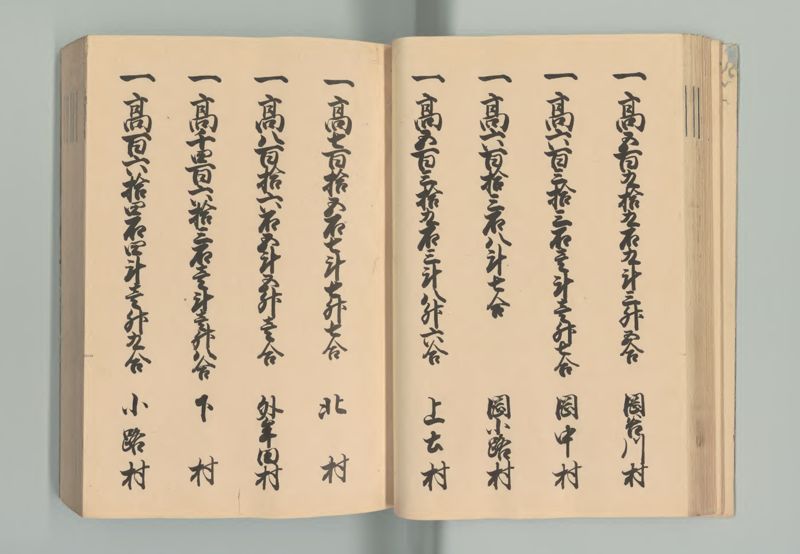 一高五百九拾九石九斗三升五合 岡谷川村
一高六百三拾三石壱斗壱升七合 岡中村
一高六百拾三石八斗七合 岡小路村
一高五百三拾九石三斗八升六合 上古村
一高七百拾五石七斗七升七合 北村
一高八百拾六石五斗五升壱合 村
一高千四百六拾三石壱斗壱升八合 下村
一高百六拾四石四斗壱升九合 小路村